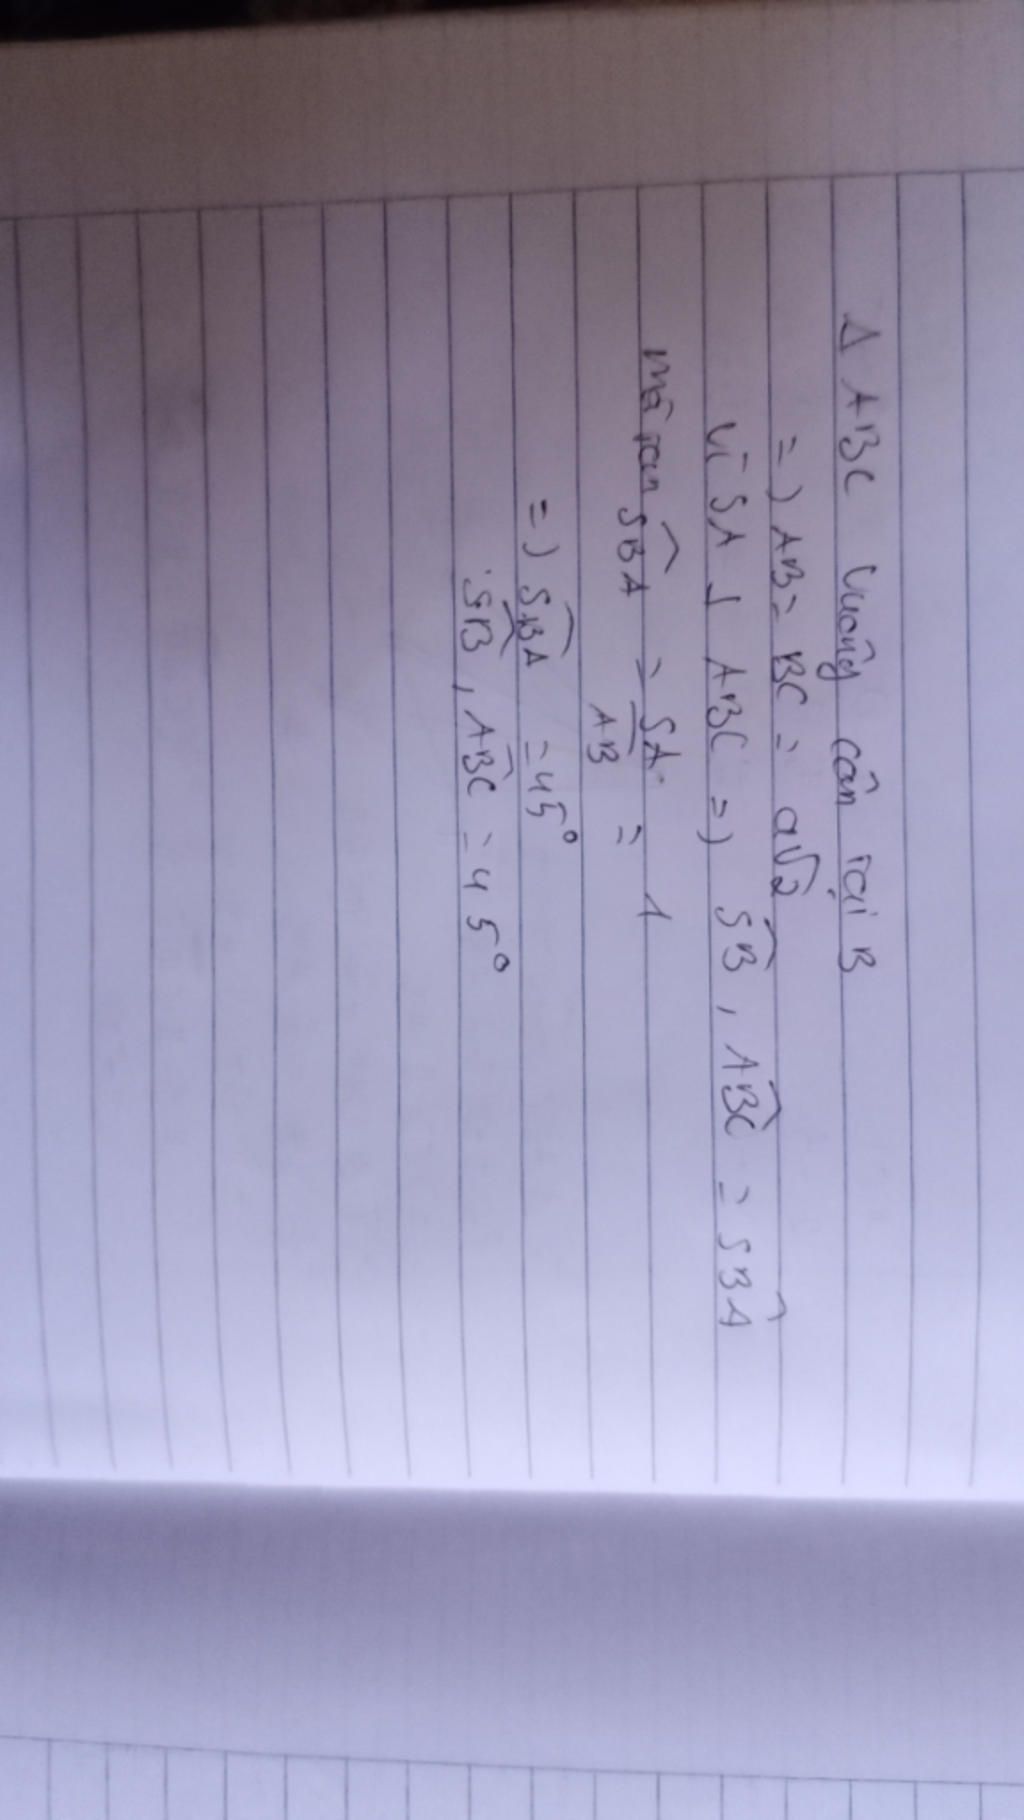 Δ ABC vuông cân tại B
=) AB = BC = a√2
Vì SA ⊥ ABC =) SB̂, ABĈ = SBÂ
mà tan SBA = SA/AB = 1
=) SBA = 45°
SB, ABC = 45°